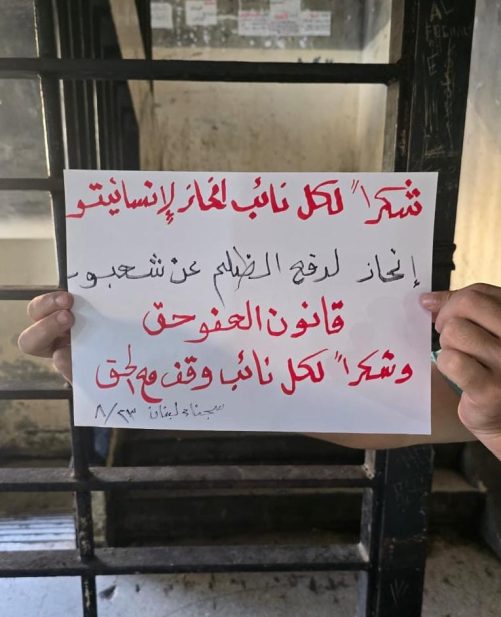 شكراً لكل نائب انحاز لإنسانيتو
إنحاز لدفع الظلم عن شعبو
قانون العفو حق
وشكراً لكل نائب وقف مع الحق
سجناء لبنان ٨/٢٣